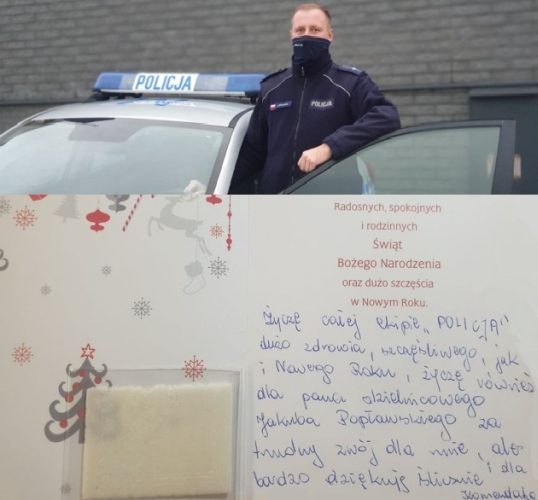 POLICJA
POLICJA
Radosnych, spokojnych
i rodzinnych
Świąt
Bożego Narodzenia
oraz dużo szczęścia
w Nowym Roku.
Życzę całej ekipie „POLICJA"
dużo zdrowia, szczęśliwego, jak
i Nowego Roku, życzę również
dla pana dzielnicowego
Jakuba Popławskiego za
trudny znój dla mnie, ale
bardzo dziękuję ślicznie i dla